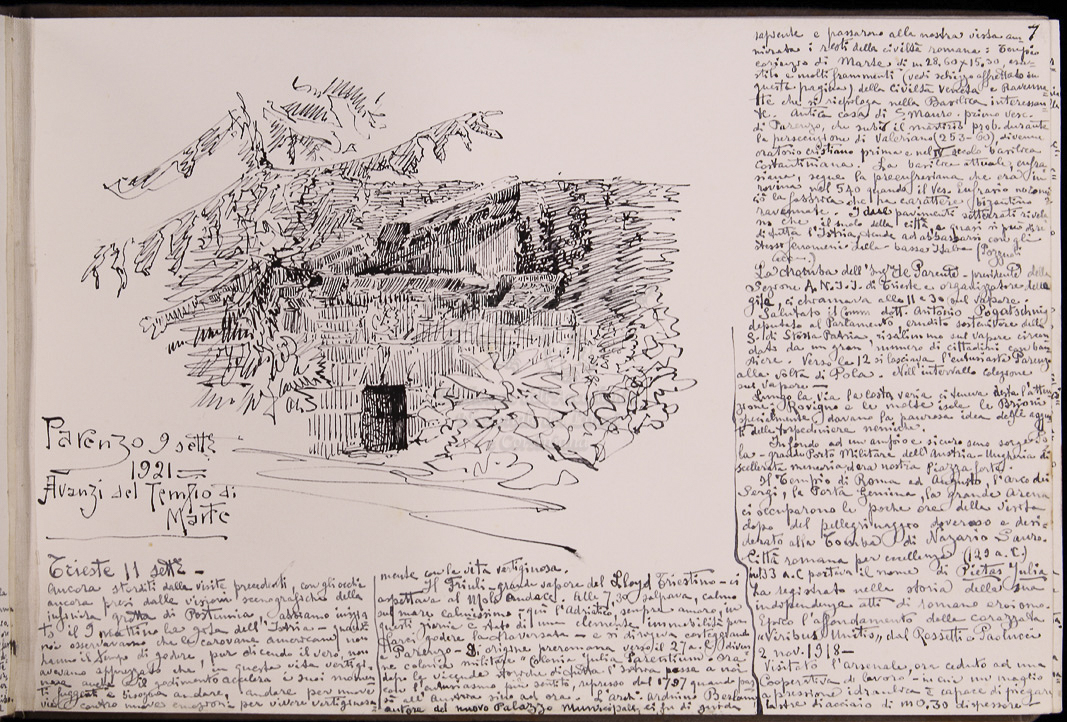 Parenzo 9 sett.e
1921 =
Avanzi del Tempio di
Marte
Trieste 11 sett.e -
Ancora storditi dalle visite precedenti, con gli occhi
ancora presi dalle visioni scenografiche della
grotta di Postumia,
il 9 mattina la gita dell'Istria - quanti
noi osservavamo che le carovane americane non
hanno il tempo di godere, pur dicendo il vero, non
avevamo pensato che in questa vita vertigi-
nosa anche il godimento accelera i suoi momen
ti fuggenti e bisogna andare, andare per nuove
vie contro nuove emozioni - per vivere vertiginosa
mente con la vita vertiginosa.
Il Friuli - grande vapore del Lloyd Triestino - ci
aspettava al Molo Audace. Alle 7.30 salpava, calmo
sul mare calmissimo - qui l'Adriatico, sempre amaro, in
questi giorni è stato di una clemente immobilità per
farci godere la traversata - e si dirigeva costeggiando
a Parenzo - Di origine preromana verso il 27 a.C. diven
ne colonia militare "Colonia Julia Parentium" - Ora
dopo le vicende storiche di tutta l'Istria, passa a noi
con l'entusiasmo più sentito, represso dal 1797 quando pas
sò all'Austria sino ad ora. L'Arch. Arduino Berlam
autore del nuovo Palazzo Municipale ci fu di guida
sapiente e passarono alla nostra vista am
mirata i resti della civiltà romana: Tempio
corinzio di Marte di m 28,60 x 15,30, esa-
stilo e molti frammenti (vedi schizzo affrettato in
questa pagina) della civiltà veneta e Ravenna
te che si riepiloga nella Basilica interessan
te. Antica casa di S. Mauro - primo vesc.
di Parenzo, che subì il martirio prob. durante
la persecuzione di Valeriano (255-60), divenne
oratorio cristiano prima e nel IV secolo basilica
Costantiniana. La basilica attuale, eufra
siana, segue la preeufrasiana che era in
rovina nel 540 quando il Vesc. Eufrasio
la fabbrica che ha carattere bizantino
ravennate. I due pavimenti sotterrati rivela
no che il suolo della città, e quasi si può dire
di tutta l'Istria, tende ad abbassarsi con gli
stessi fenomeni della bassa Italia (Pozzuoli
ecc.)
La chiamata dell'Ing.re De Parente - presidente della
Sezione A.N.I.I. di Trieste e organizzatore della
gita, ci chiamava alle 11 e 30 sul vapore.
Salutato il Comm. dott. Antonio Pogatschnig
deputato al Parlamento erudito sostenitore della
S. di Storia Patria, risalimmo sul vapore circon
dati da un gran numero di cittadini con ban
diere. Verso le 12 si lasciava l'entusiasta Parenzo
alla volta di Pola. Nell'intervallo colazione
sul vapore -
Lungo la via la costa varia ci teneva desta l'atten
zione, Rovigno e le molte isole, le Brioni
specialmente, davano la paurosa idea degli aggua
ti delle torpediniere nemiche.
In fondo ad un ampio e sicuro seno sorgeva
la - grande Porto Militare dell'Austria-Ungheria di
scellerata memoria, ora nostra piazza forte.
Il Tempio di Roma ed Augusto, l'Arco dei
Sergi, la Porta Gemina, la grande Arena
ci occuparono le poche ore della visita
dopo del pellegrinaggio doveroso e desi-
derato alla Tomba di Nazario Sauro.
Città romana per eccellenza (129 a.C.)
nel 33 a.C. portava il nome di Pietas Julia.
Ha registrato nella storia della sua
indipendenza atti di romano eroismo.
Epico l'affondamento della corazzata
"Viribus Unitis" dal Rossetti - Paolucci
2 nov. 1918 -
Visitato l'arsenale, ora ceduto ad una
Cooperativa di lavoro - in cui un maglio
a pressione idraulica è capace di piegare
lastre di acciaio di m 0.30 di spessore -
7